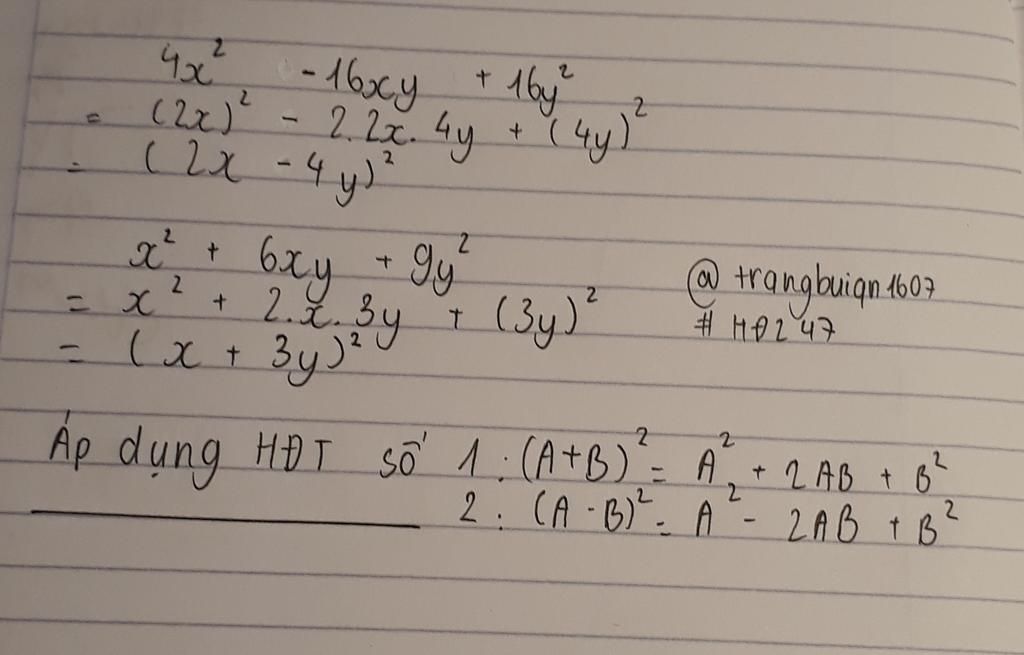 4x² - 16xy + 16y²
= (2x)² - 2.2x.4y + (4y)²
= (2x - 4y)²
x² + 6xy + 9y²
= x² + 2.x.3y + (3y)²
= (x + 3y)²
@trangbuiqn1607
#HĐ247
Áp dụng HĐT số 1: (A+B)² = A² + 2AB + B²
2: (A-B)² = A² - 2AB + B²